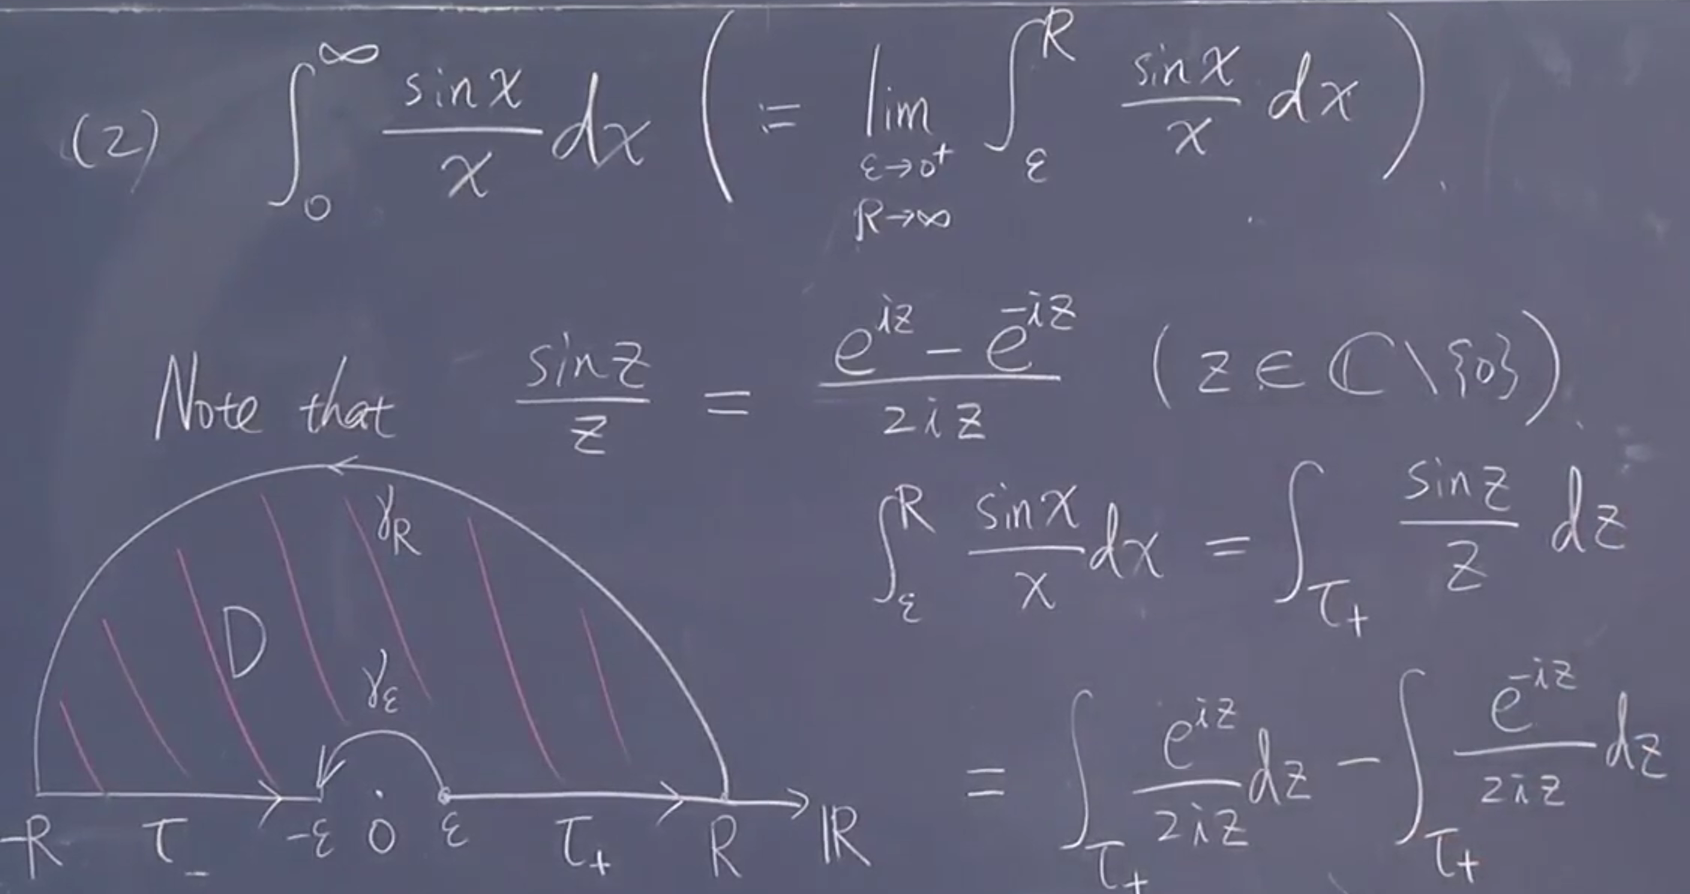 (2) ∫_0^∞ sinx/x dx ( := lim_{ε→0⁺ R→∞} ∫_ε^R sinx/x dx ) .
Note that sinz/z = (e^{iz} - e^{-iz})/(2iz) ( z ∈ ℂ \ {0} ).
∫_ε^R sinx/x dx = ∫_{τ₊} sinz/z dz
= ∫_{τ₊} e^{iz}/(2iz) dz - ∫_{τ₊} e^{-iz}/(2iz) dz
γ_R
D
γ_ε
-R τ₋ -ε 0 ε τ₊ R ℝ